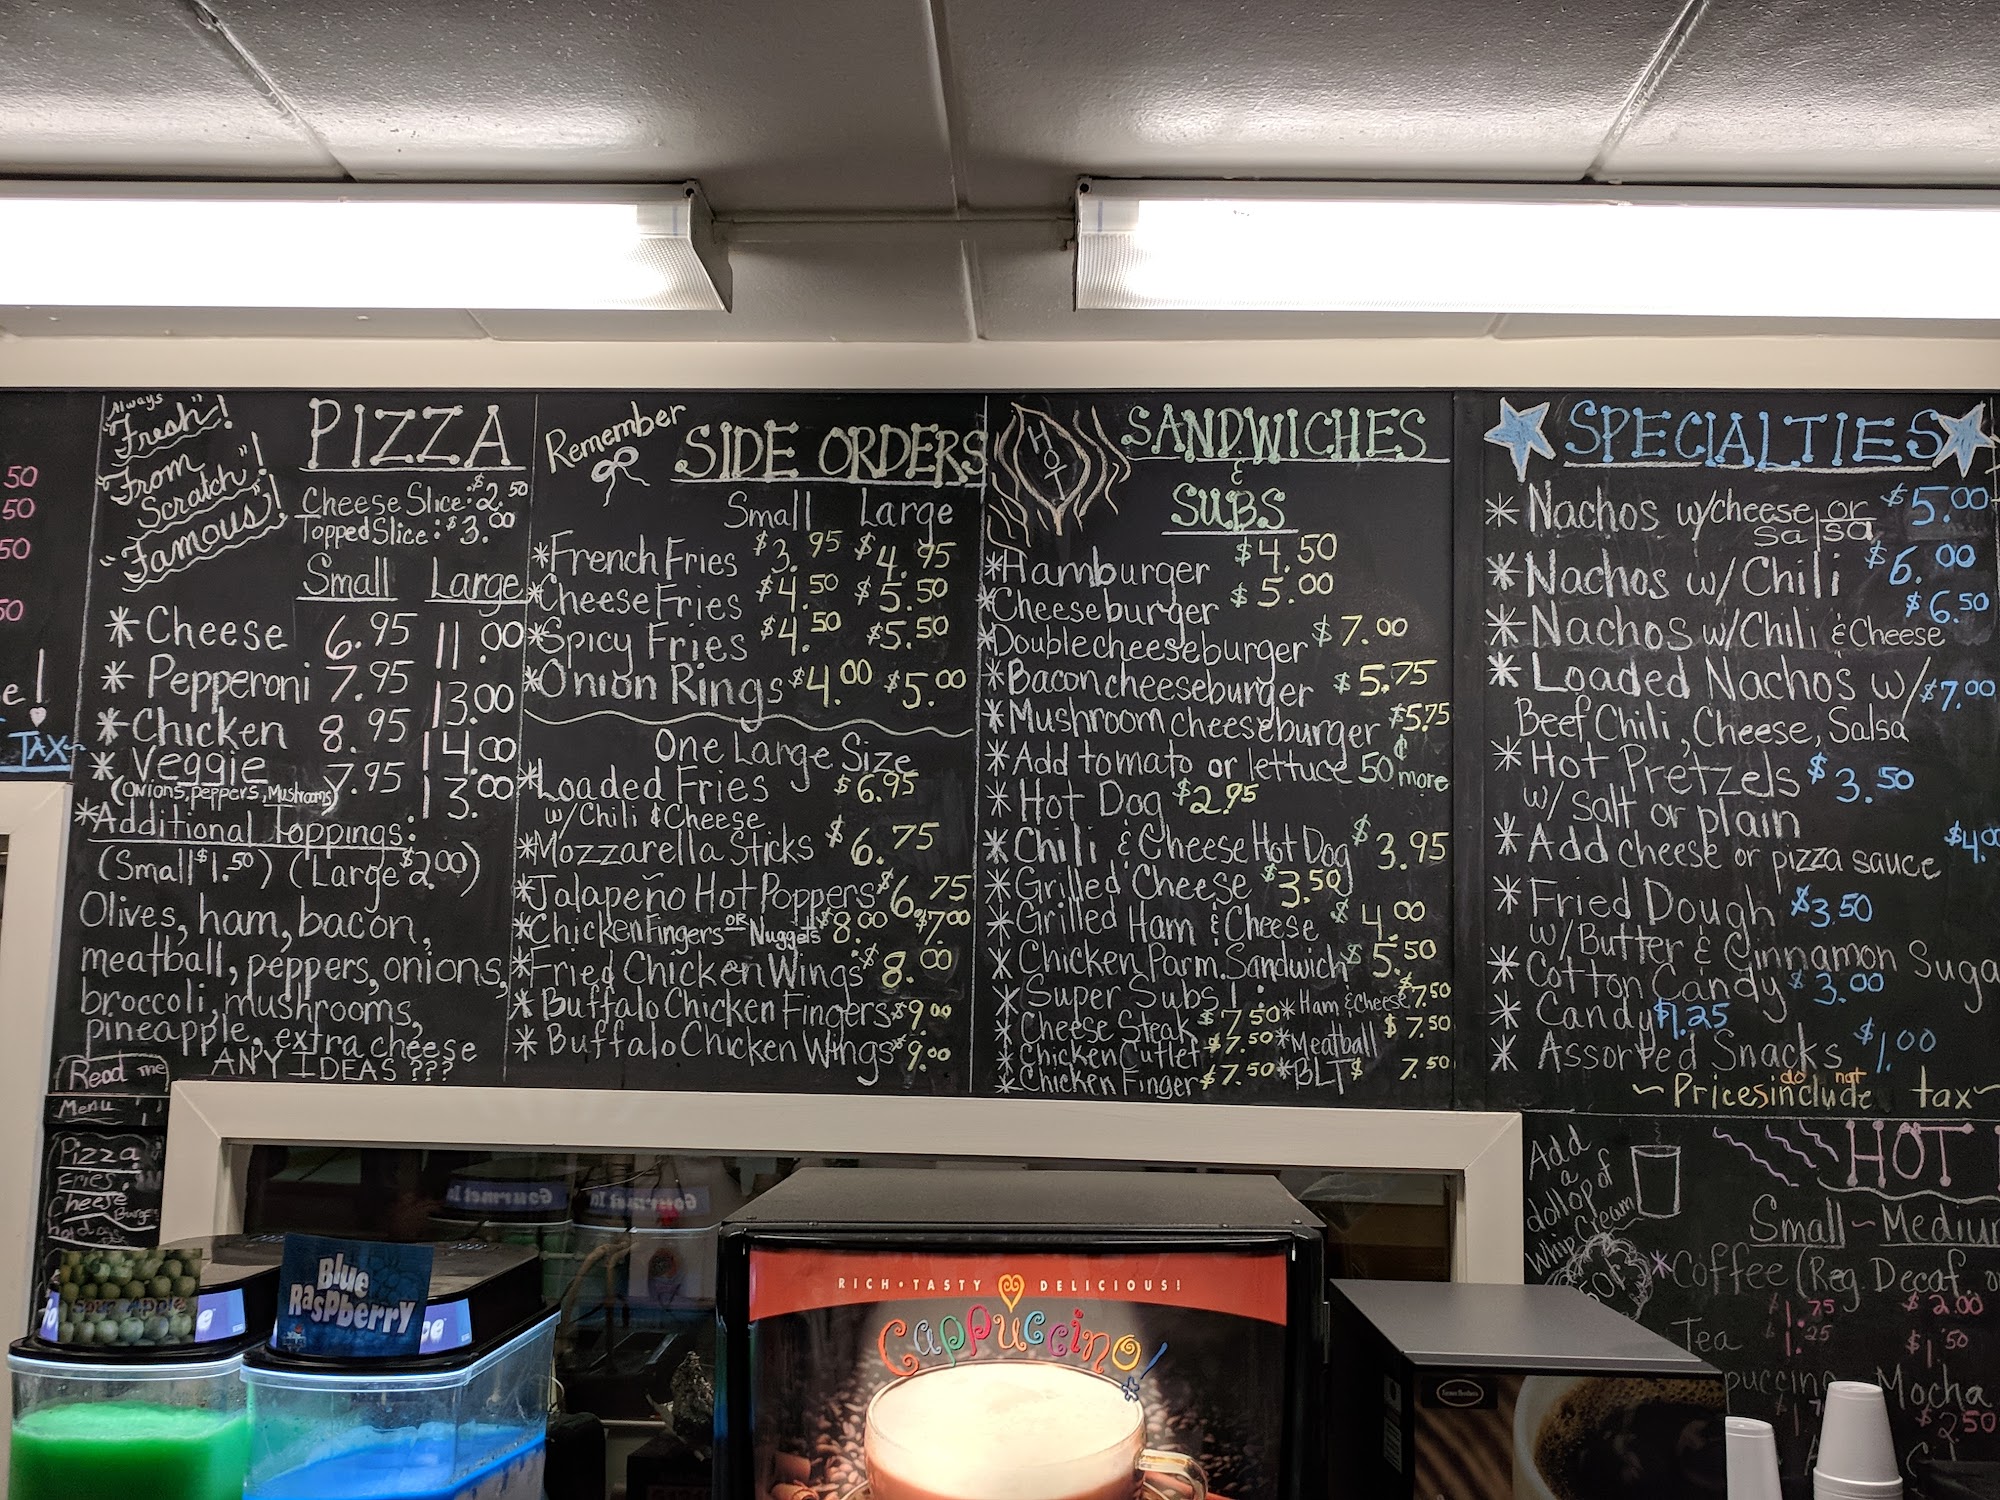 50
50
50
50
e!
TAX~
Always
"Fresh"!
"From
Scratch"!
"Famous"!
PIZZA
Cheese Slice: $2.50
Topped Slice: $3.00
Small Large
*Cheese 6.95 11.00
*Pepperoni 7.95 13.00
*Chicken 8.95 14.00
*Veggie 7.95 13.00
(Onions, peppers, Mushrooms)
*Additional Toppings:
(Small $1.50) (Large $2.00)
Olives, ham, bacon,
meatball, peppers, onions,
broccoli, mushrooms,
pineapple, extra cheese
ANY IDEAS ???
Remember
SIDE ORDERS
Small Large
*French Fries $3.95 $4.95
*Cheese Fries $4.50 $5.50
*Spicy Fries $4.50 $5.50
*Onion Rings $4.00 $5.00
One Large Size
*Loaded Fries $6.95
w/ Chili & Cheese
*Mozzarella Sticks $6.75
*Jalapeño Hot Poppers $6.75
*Chicken Fingers or Nuggets $8.00 $7.00
*Fried Chicken Wings $8.00
*Buffalo Chicken Fingers $9.00
*Buffalo Chicken Wings $9.00
HOT
SANDWICHES
&
SUBS
*Hamburger $4.50
*Cheeseburger $5.00
*Doublecheeseburger $7.00
*Baconcheeseburger $5.75
*Mushroom cheeseburger $5.75
*Add tomato or lettuce 50¢ more
*Hot Dog $2.95
*Chili & Cheese Hot Dog $3.95
*Grilled Cheese $3.50
*Grilled Ham & Cheese $4.00
*Chicken Parm. Sandwich $5.50
*Super Subs! : *Ham & Cheese $7.50
*Cheese Steak $7.50 *Meatball $7.50
*Chicken Cutlet $7.50 *BLT $7.50
*Chicken Finger $7.50
SPECIALTIES
*Nachos w/cheese or salsa $5.00
*Nachos w/Chili $6.00
*Nachos w/Chili & Cheese $6.50
*Loaded Nachos w/ $7.00
Beef Chili, Cheese, Salsa
*Hot Pretzels $3.50
w/ salt or plain
*Add cheese or pizza sauce $4.00
*Fried Dough $3.50
w/Butter & Cinnamon Suga
*Cotton Candy $3.00
*Candy $1.25
*Assorted Snacks $1.00
~Prices do not include tax~
Read the
Menu
Pizza
Fries,
Cheese
Burge
hotdogs
Add
a
dollop of
Whip Cream
HOT
Small ~ Medium
*Coffee (Reg. Decaf. o
$1.75 $2.00
Tea $1.25 $1.50
ppuccino Mocha
$2.50
Sour Apple
Blue
Raspberry
Gourmet Ic
RICH • TASTY DELICIOUS!
Cappuccino!